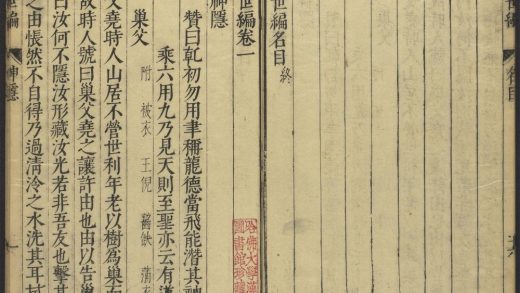 世編
名目
世編名目終
世編卷一
神隱
贊曰乹初勿用聿稱龍德當飛能潛其神
乘六用九乃見天則至聖亦云有道
巢父 附 被衣 王倪 齧缺 蒲衣
父堯時人山居不營世利年老以樹爲巢而
故時人號曰巢父堯之讓許由也由以告巢
曰汝何不隱汝形藏汝光若非吾友也擊其
之由悵然不自得乃過清泠之水洗其耳拭
世編
神隱
一
哈佛大學漢
圖書館珍藏